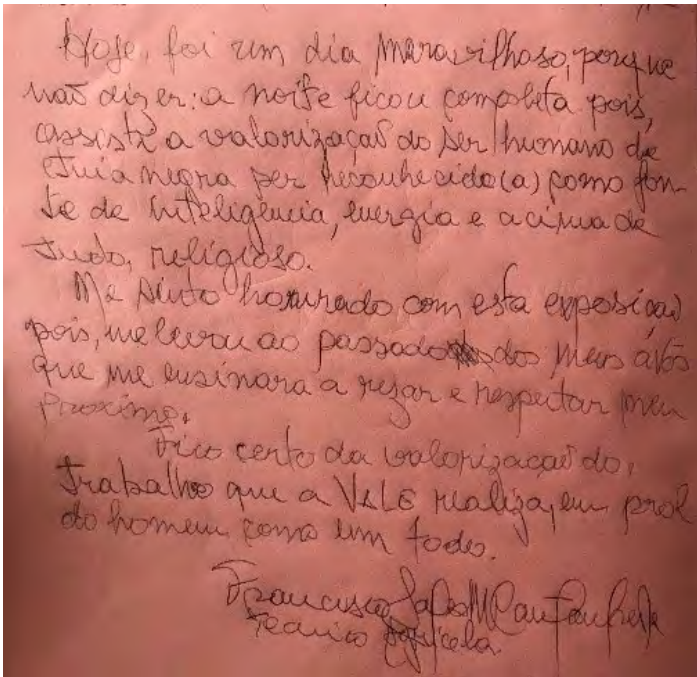 Hoje, foi um dia maravilhoso, porque
não dizer: a noite ficou completa pois,
assisti a valorização do ser humano de
etnia negra ser reconhecido(a) como fon-
te de inteligência, energia e acima de
tudo, religioso.
Me sinto honrado com esta exposição
pois, me levou ao passado dos meus avós
que me ensinara a rezar e respeitar meu
proximo.
Fico certo da valorização do,
trabalho que a VALE realiza, em prol
do homem como um todo.
Francisco
Técnico Agrícola.